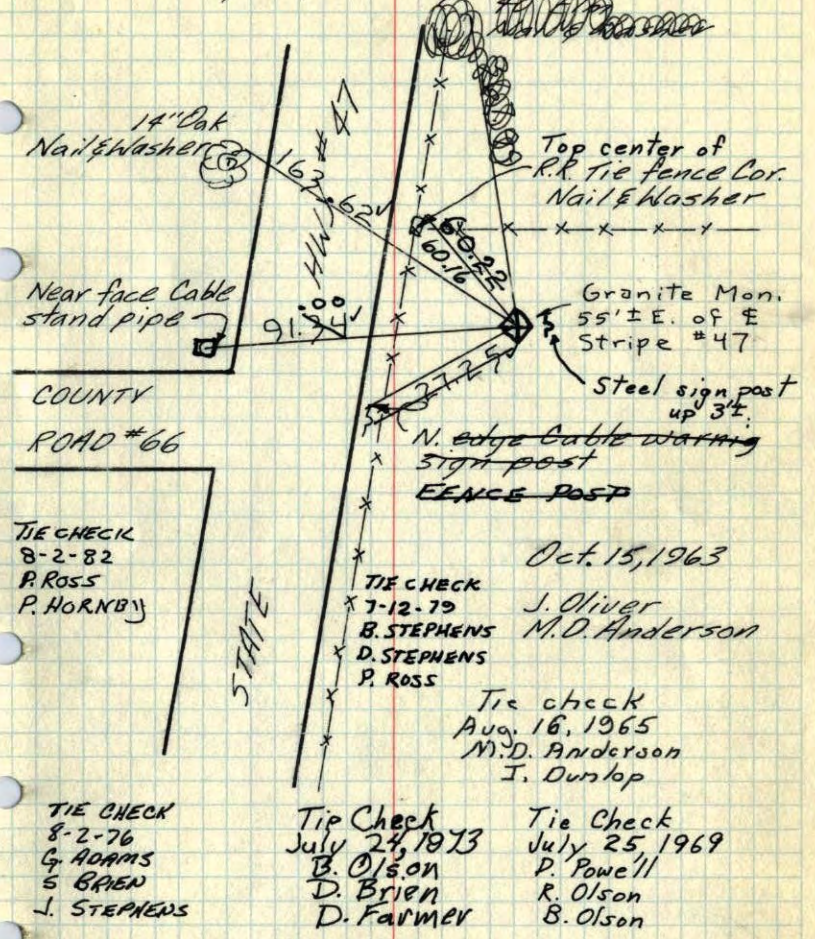 14" Oak
Nail & Washer
16
.62
HWY # 47
Top center of
R.R. Tie fence Cor.
Nail & Washer
60.22
60.16
Near face Cable
stand pipe
91.
.00
Granite Mon.
55' ± E. of ℄
Stripe #47
Steel sign post
up 3' ±.
27.25
COUNTY
ROAD #66
N. edge Cable warnig
sign post
FENCE POST
TIE CHECK
8-2-82
P. ROSS
P. HORNBY
STATE
TIE CHECK
7-12-79
B. STEPHENS
D. STEPHENS
P. ROSS
Oct. 15, 1963
J. Oliver
M.D. Anderson
Tie check
Aug. 16, 1965
M.D. Anderson
I. Dunlop
TIE CHECK
8-2-76
G. ADAMS
S BRIEN
J. STEPHENS
Tie Check
July 24, 1973
B. Olson
D. Brien
D. Farmer
Tie Check
July 25, 1969
D. Powell
R. Olson
B. Olson